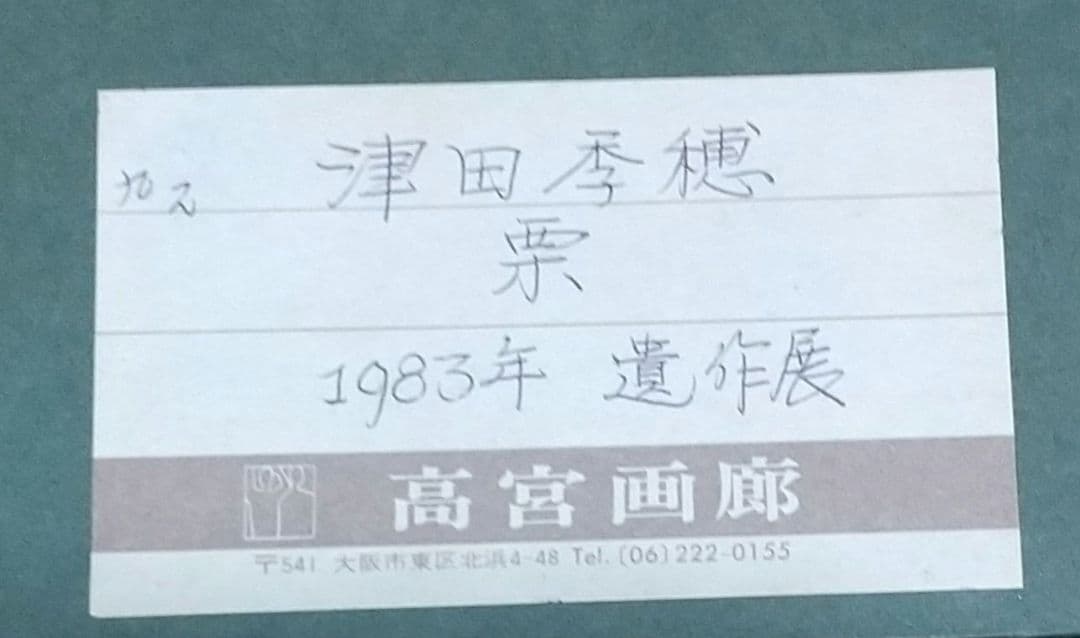 津田季穂
栗
1983年 遺作展
高宮画廊
〒541 大阪市東区北浜4-48 Tel. (06)222-0155